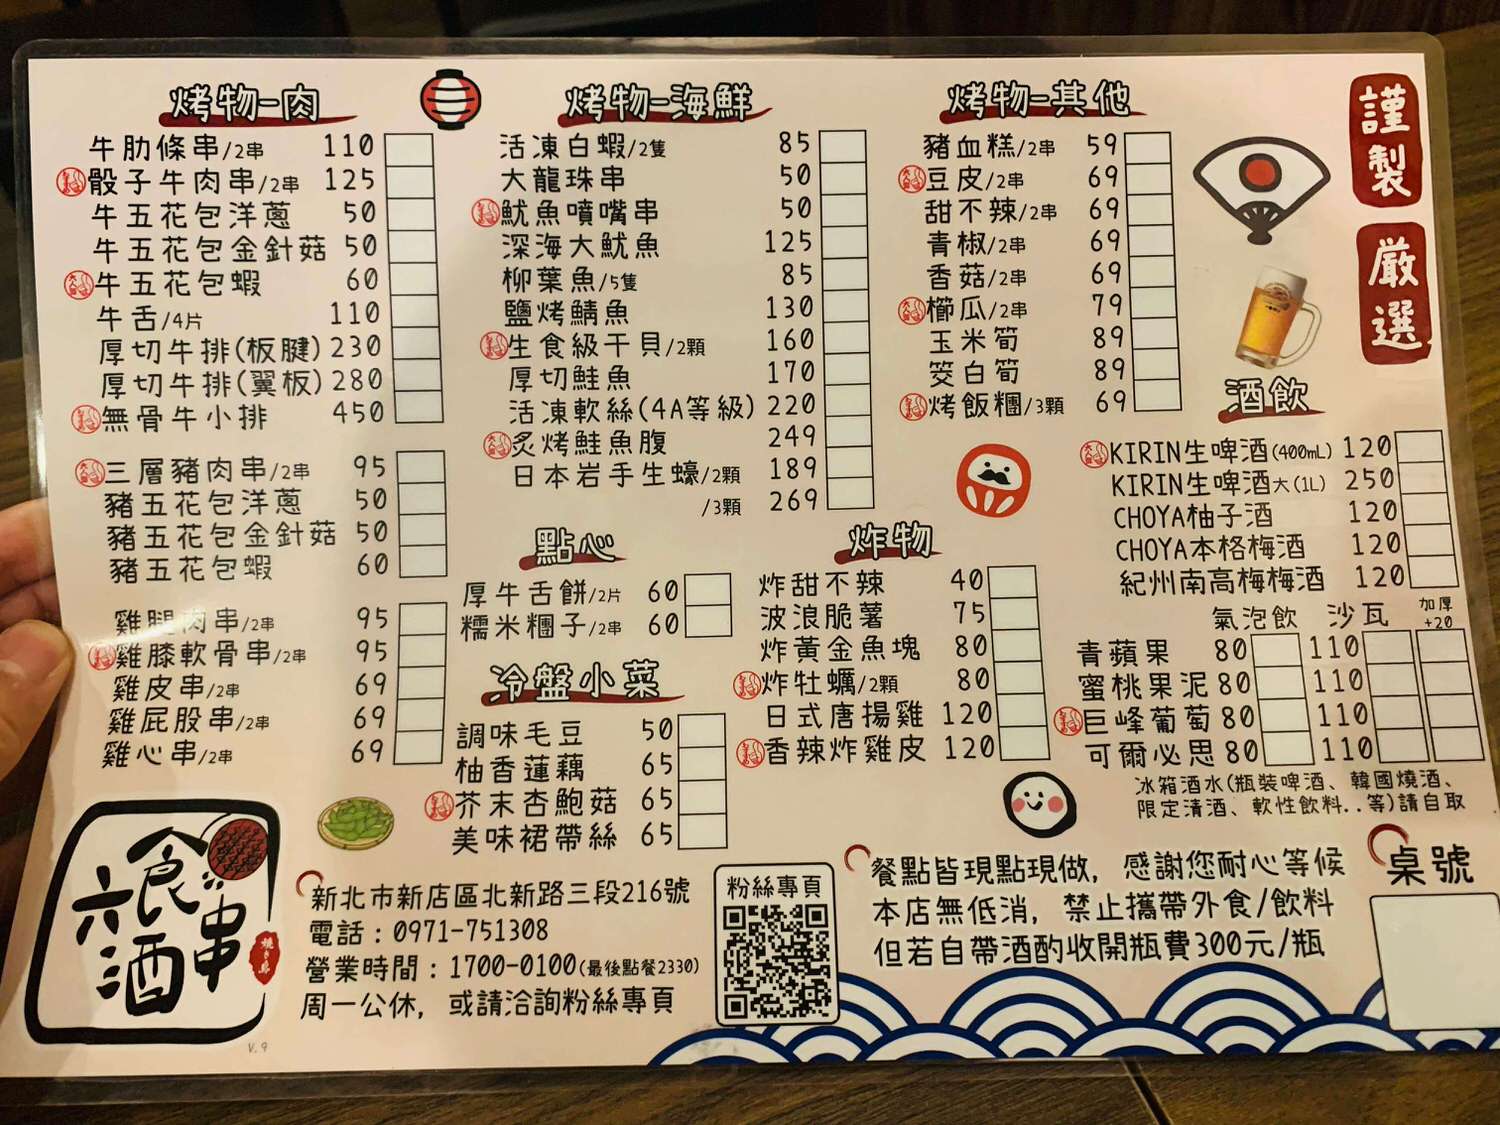 烤物-肉
牛肋條串/2串 110
骰子牛肉串/2串 125
牛五花包洋蔥 50
牛五花包金針菇 50
牛五花包蝦 60
牛舌/4片 110
厚切牛排(板腱) 230
厚切牛排(翼板) 280
無骨牛小排 450
三層豬肉串/2串 95
豬五花包洋蔥 50
豬五花包金針菇 50
豬五花包蝦 60
雞腿肉串/2串 95
雞膝軟骨串/2串 95
雞皮串/2串 69
雞屁股串/2串 69
雞心串/2串 69
烤物-海鮮
活凍白蝦/2隻 85
大龍珠串 50
魷魚噴嘴串 50
深海大魷魚 125
柳葉魚/5隻 85
鹽烤鯖魚 130
生食級干貝/2顆 160
厚切鮭魚 170
活凍軟絲(4A等級) 220
炙烤鮭魚腹 249
日本岩手生蠔/2顆 189
/3顆 269
點心
厚牛舌餅/2片 60
糯米糰子/2串 60
冷盤小菜
調味毛豆 50
柚香蓮藕 65
芥末杏鮑菇 65
美味裙帶絲 65
烤物-其他
豬血糕/2串 59
豆皮/2串 69
甜不辣/2串 69
青椒/2串 69
香菇/2串 69
櫛瓜/2串 79
玉米筍 89
筊白筍 89
烤飯糰/3顆 69
炸物
炸甜不辣 40
波浪脆薯 75
炸黃金魚塊 80
炸牡蠣/2顆 80
日式唐揚雞 120
香辣炸雞皮 120
謹製
厳選
酒飲
KIRIN生啤酒(400mL) 120
KIRIN生啤酒大(1L) 250
CHOYA柚子酒 120
CHOYA本格梅酒 120
紀州南高梅梅酒 120
氣泡飲 沙瓦 加厚+20
青蘋果 80 110
蜜桃果泥 80 110
巨峰葡萄 80 110
可爾必思 80 110
冰箱酒水(瓶裝啤酒、韓國燒酒、
限定清酒、軟性飲料..等)請自取
食串
六酒
V.9
新北市新店區北新路三段216號
電話：0971-751308
營業時間：1700-0100(最後點餐2330)
周一公休，或請洽詢粉絲專頁
粉絲專頁
餐點皆現點現做，感謝您耐心等候
本店無低消，禁止攜帶外食/飲料
但若自帶酒酌收開瓶費300元/瓶
桌號